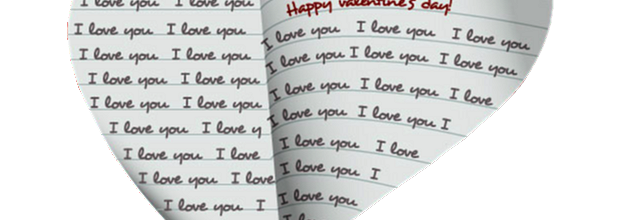 I love you I love you
I love you I love you
I love you I love you
I love you I love you
I love you I love you
I love you I love y
I love you I love
I love you I love
I love you I
Happy valentine's day!
I love you I love you I love you
I love you I love you I love you
I love you I love you I love
I love you I love you I
I love you I love
I love you I
I love you